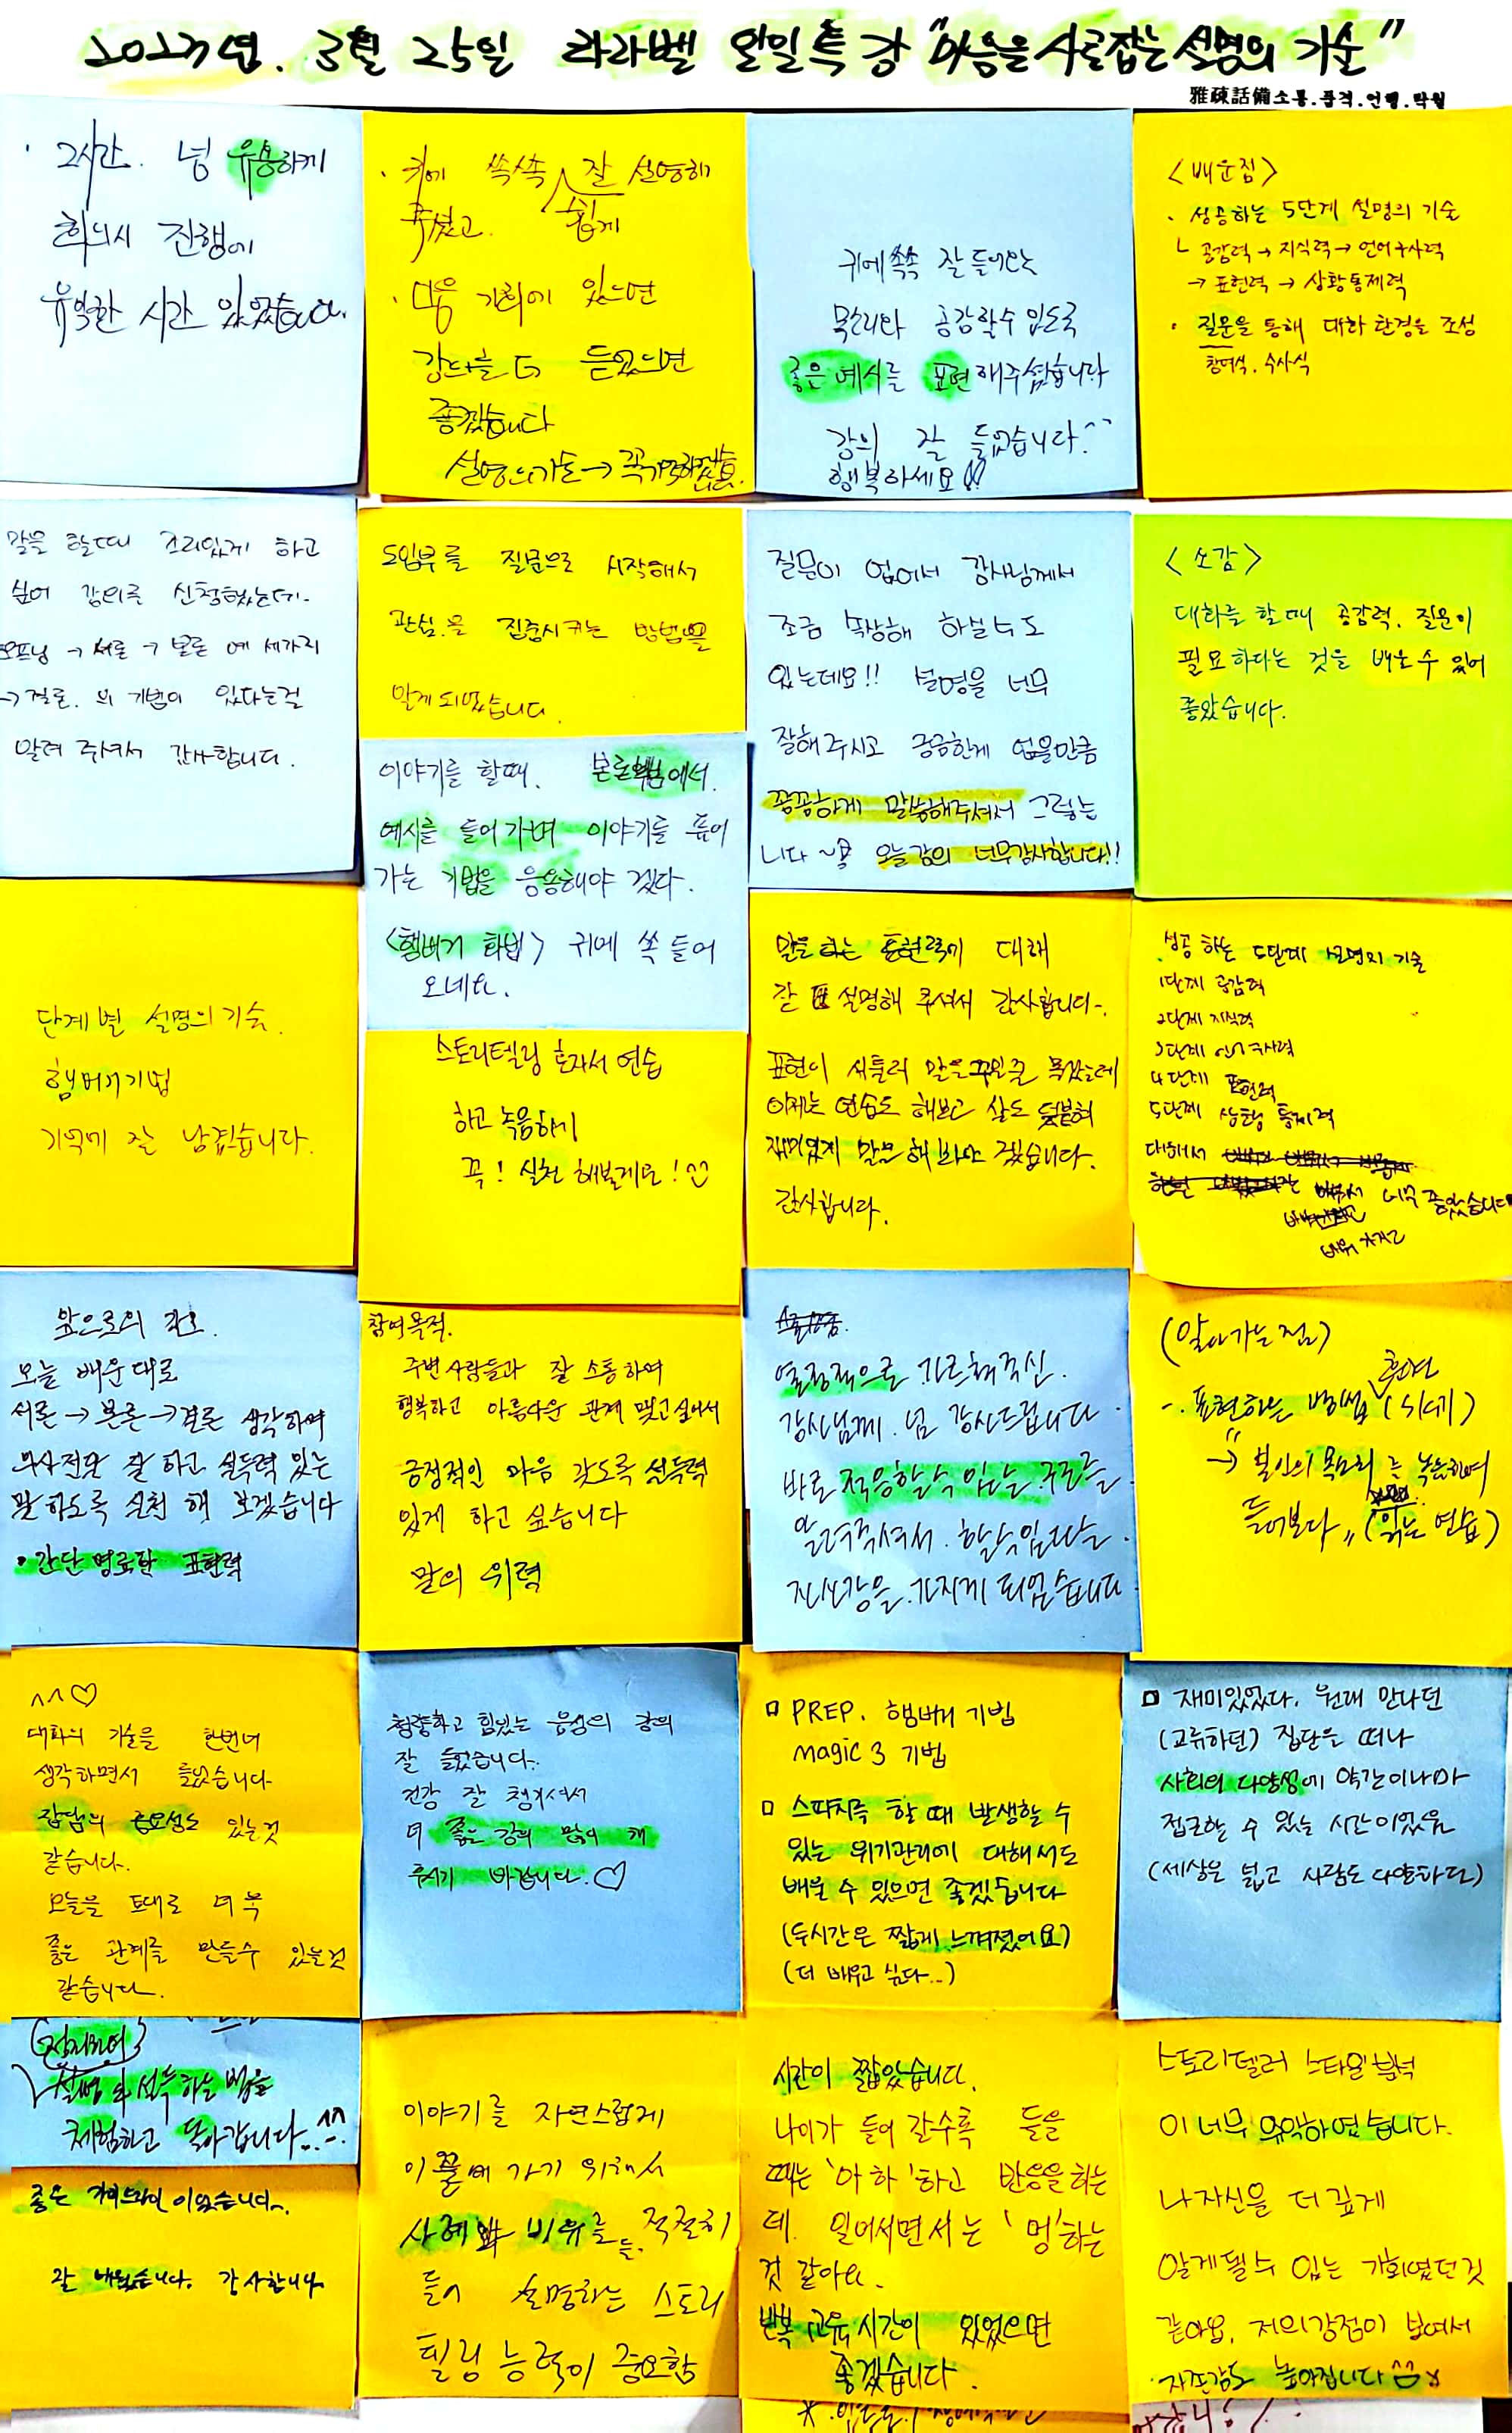 2023년. 3월 25일 라라벨 원밀특강 "마음을 사로잡는 설명의 기술"
雅疎話備 소통.품격.언행.탁월
· 2시간. 넘 유용하게
회의시 진행에
유익한 시간 있었습니다.
· 귀에 쏙쏙 잘 설명해
쉽게
주셨고.
· 다음 기회에 있으면
강의를 더 들었으면
좋겠습니다
설명의 기술 → 꼭 기억하겠음.
귀에 쏙쏙 잘 들어오는
목소리와 공감할수 있도록
좋은 예시를 표현해주셨습니다
강의 잘 들었습니다^^
행복하세요!!
<배운점>
· 성공하는 5단계 설명의 기술
└ 공감력 → 지식력 → 언어구사력
→ 표현력 → 상황통제력
· 질문을 통해 대화 환경을 조성
참여식. 수사식
말을 할때 조리있게 하고
싶어 강의를 신청했는데.
오프닝 → 서론 → 본론 예 세가지
→ 결론. 의 기법이 있다는걸
알려 주셔서 감사합니다.
도입부를 질문으로 시작해서
관심을 집중시키는 방법을
알게 되었습니다.
이야기를 할때. 본론에서.
예시를 들어가며 이야기를 풀어
가는 기법을 응용해야 겠다.
<햄버거 화법> 귀에 쏙 들어
오네요.
질문이 없어서 강사님께서
조금 속상해 하실수도
있는데요!! 설명을 너무
잘해주시고 궁금한게 없을만큼
꼼꼼하게 말씀해주셔서 그렇습
니다~ 오늘 강의 너무 감사합니다!!
<소감>
대화를 할 때 공감력. 질문이
필요하다는 것을 배울 수 있어
좋았습니다.
단계별 설명의 기술.
햄버거기법
기억에 잘 남겠습니다.
스토리텔링 혼자서 연습
하고 녹음하기
꼭! 실천 해볼게요!^^
말을 하는 표현력에 대해
잘 설명해 주셔서 감사합니다.
표현이 서툴러 말을 꾸밀줄 몰랐는데
이제는 연습도 해보고 살도 덧붙혀
재미있게 말을 해 봐야 겠습니다.
감사합니다.
성공 하는 5단계 설명의 기술
1단계 공감력
2단계 지식력
3단계 언어구사력
4단계 표현력
5단계 상황 통제력
대해서
배워서 너무 좋았습니다
앞으로의 각오.
오늘 배운대로
서론 → 본론 → 결론 생각하여
의사전달 잘 하고 설득력 있는
말 하도록 실천 해 보겠습니다
· 간단 명료한 표현력
참여목적.
주변사람들과 잘 소통하여
행복하고 아름다운 관계 맺고싶어서
긍정적인 마음 갖도록 설득력
있게 하고 싶습니다
말의 위력
열정적으로 가르쳐주신.
강사님께. 넘 감사드립니다.
바로 적응할수 있는 구조를
알려주셔서. 할수있다는.
자신감을. 가지게 되었습니다
(알아가는 점)
훈련
표현하는 방법 (5단계)
→ "본인의 목소리를 녹음하여
들어보다" (읽는 연습)
^^♡
대화의 기술을 한번더
생각하면서 들었습니다
잡담의 중요성도 있는것
같습니다.
오늘을 토대로 더욱
좋은 관계를 만들수 있을것
같습니다.
청중하고 힘있는 음성의 강의
잘 들었습니다.
건강 잘 챙기셔서
더 좋은 강의 많이 해
주시기 바랍니다.♡
□ PREP. 햄버거 기법
magic 3 기법
□ 스피치를 할 때 발생할 수
있는 위기관리에 대해서도
배울 수 있으면 좋겠습니다
(두시간은 짧게 느껴졌어요)
(더 배우고 싶다...)
□ 재미있었다. 원래 만나던
(교류하던) 집단을 떠나
사회의 다양성에 약간이나마
접근할 수 있는 시간이었음
(세상은 넓고 사람도 다양하다)
설명과 설득하는 법을
체험하고 돌아갑니다..^^
좋은 가이드라인 이었습니다.
잘 배웠습니다. 감사합니다
이야기를 자연스럽게
이끌어 가기 위해서
사례와 비유를 적절히
들어 설명하는 스토리
텔링 능력이 중요함
시간이 짧았습니다.
나이가 들어 갈수록 들을
때는 '아하'하고 반응을 하는
데. 일어서면서는 '멍'하는
것 같아요.
반복 교육 시간이 있었으면
좋겠습니다.
스토리텔러 스타일 분석
이 너무 유익하였습니다.
나 자신을 더 깊게
알게될수 있는 기회였던것
같아요. 저의 강점이 보여서
자존감도 높아집니다^^